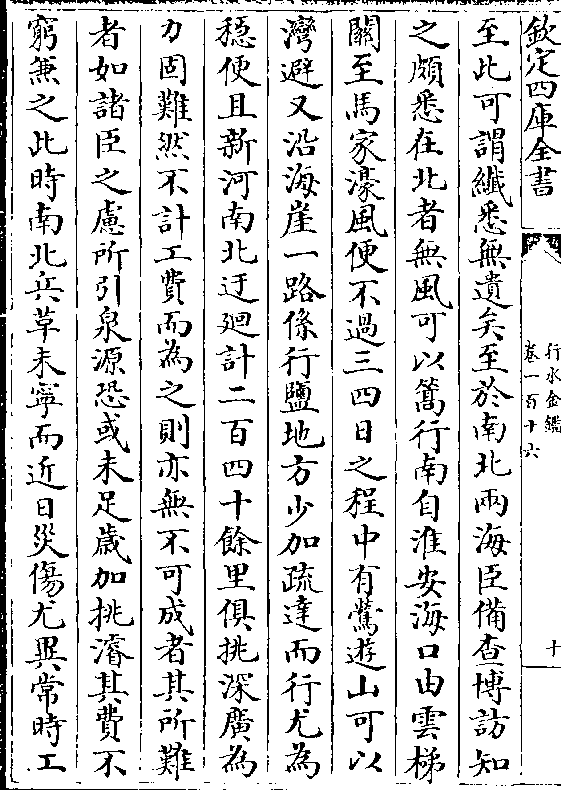 欽定四庫全書
行水金鑑
卷一百十六
十
至此可謂纖悉無遺矣至於南北兩海臣備查博訪知
之頗悉在北者無風可以篙行南自淮安海口由雲梯
關至馬家濠風便不過三四日之程中有鶯遊山可以
灣避又沿海崖一路係行鹽地方少加疏達而行尤為
穏便且新河南北迂廻計二百四十餘里俱挑深廣為
力固難然不計工費而為之則亦無不可成者其所難
者如諸臣之慮所引泉源恐或未足歲加挑濬其費不
窮兼之此時南北兵草未寧而近日災傷尤異常時工